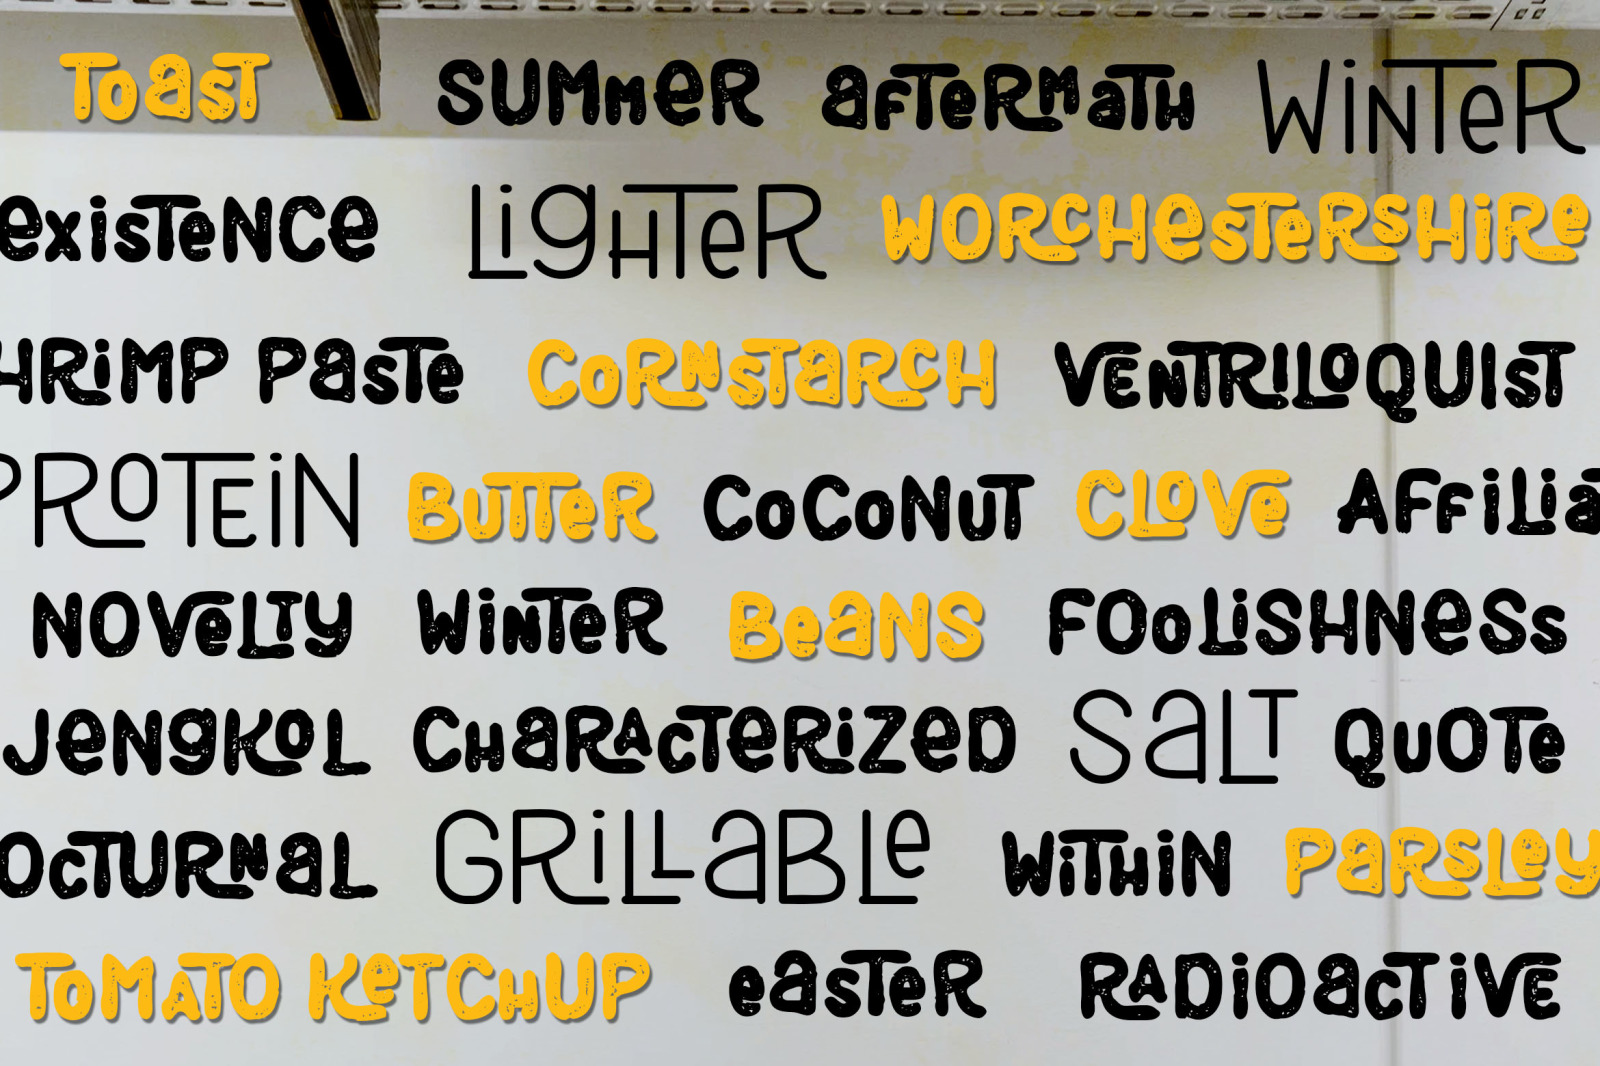 Toast SUMMER aFTERMATH WINTER
existence LIGHTER WORCHESTERSHIRE
HRIMP PASTE CORNSTARCH VENTRILOQUIST
PROTEIN BUTTER COCONUT CLOVE AFFILIA
NOVELTY WINTER BEANS FOOLISHNESS
JENGKOL CHARACTERIZED SALT QUOTE
OCTURNAL GRILLABLE WITHIN PARSLEY
TOMATO KETCHUP EASTER RADIOACTIVE